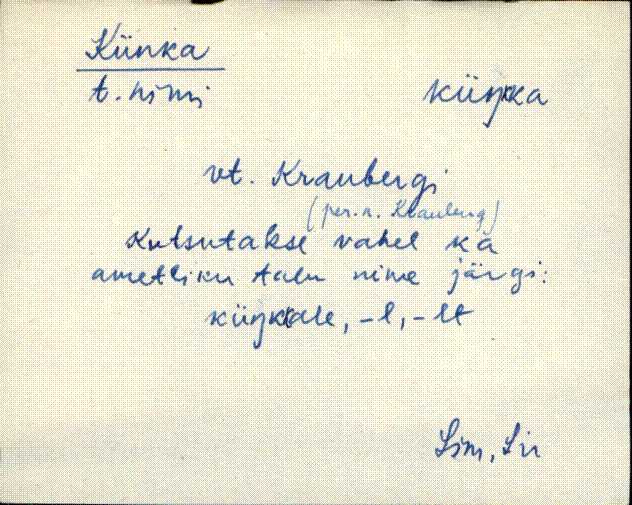 Künka
t. nimi
küŋka
vt. Kraubergi
(per. n. Krauberg)
Kutsutakse vahel ka
ametliku talu nime järgi:
küŋkale, -l, -lt
Sim, Sir